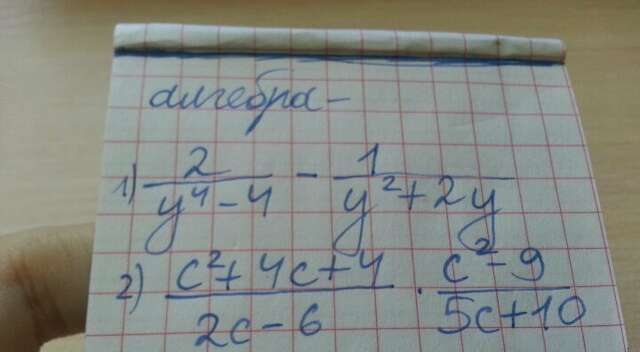 алгебра-
1) 2/(y⁴-4) - 1/(y²+2y)
2) (c²+4c+4)/(2c-6) · (c²-9)/(5c+10)